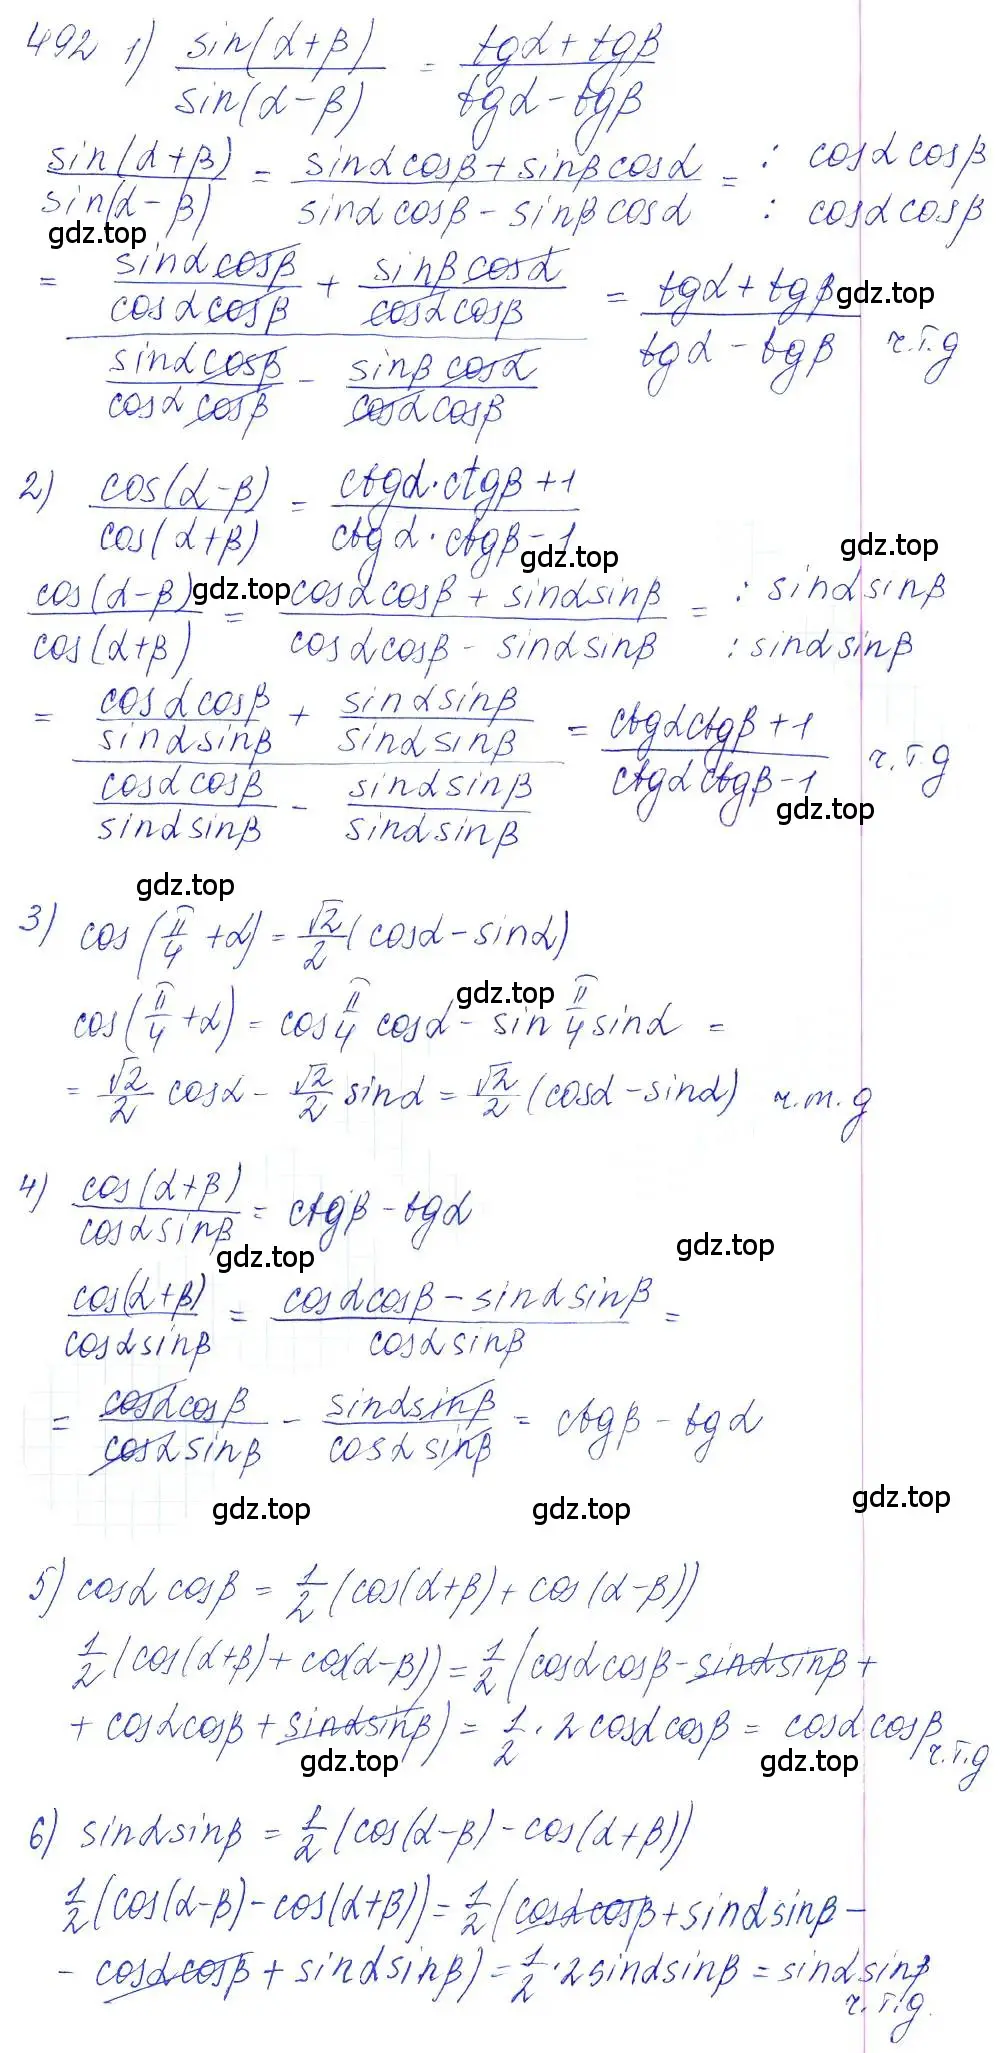 492 1) sin(α+β)/sin(α-β) = (tgα+tgβ)/(tgα-tgβ)
sin(α+β)/sin(α-β) = (sinα cosβ + sinβ cosα)/(sinα cosβ - sinβ cosα) = : cosα cosβ / : cosα cosβ
gdz.top
= (sinα cosβ/cosα cosβ + sinβ cosα/cosα cosβ)/(sinα cosβ/cosα cosβ - sinβ cosα/cosα cosβ) = (tgα+tgβ)/(tgα-tgβ) ч.т.д
gdz.top
2) cos(α-β)/cos(α+β) = (ctgα·ctgβ+1)/(ctgα·ctgβ-1)
gdz.top gdz.top
cos(α-β)/cos(α+β) = (cosα cosβ + sinα sinβ)/(cosα cosβ - sinα sinβ) = : sinα sinβ / : sinα sinβ
gdz.top
= (cosα cosβ/sinα sinβ + sinα sinβ/sinα sinβ)/(cosα cosβ/sinα sinβ - sinα sinβ/sinα sinβ) = (ctgα ctgβ+1)/(ctgα ctgβ-1) ч.т.д
gdz.top
gdz.top
3) cos(π/4 + α) = √2/2 (cosα - sinα)
gdz.top
cos(π/4 + α) = cos π/4 cosα - sin π/4 sinα =
= √2/2 cosα - √2/2 sinα = √2/2 (cosα - sinα) ч.т.д
4) cos(α+β)/cosα sinβ = ctgβ - tgα
gdz.top gdz.top
cos(α+β)/cosα sinβ = (cosα cosβ - sinα sinβ)/cosα sinβ =
= cosα cosβ/cosα sinβ - sinα sinβ/cosα sinβ = ctgβ - tgα
gdz.top gdz.top gdz.top
5) cosα cosβ = 1/2 (cos(α+β) + cos(α-β))
1/2 (cos(α+β) + cos(α-β)) = 1/2 (cosα cosβ - sinα sinβ +
+ cosα cosβ + sinα sinβ) = 1/2 · 2 cosα cosβ = cosα cosβ
ч.т.д
gdz.top gdz.top
6) sinα sinβ = 1/2 (cos(α-β) - cos(α+β))
1/2 (cos(α-β) - cos(α+β)) = 1/2 (cosα cosβ + sinα sinβ -
- cosα cosβ + sinα sinβ) = 1/2 · 2 sinα sinβ = sinα sinβ
ч.т.д.